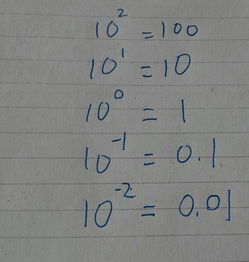 10² = 100
10¹ = 10
10⁰ = 1
10⁻¹ = 0.1
10⁻² = 0.01